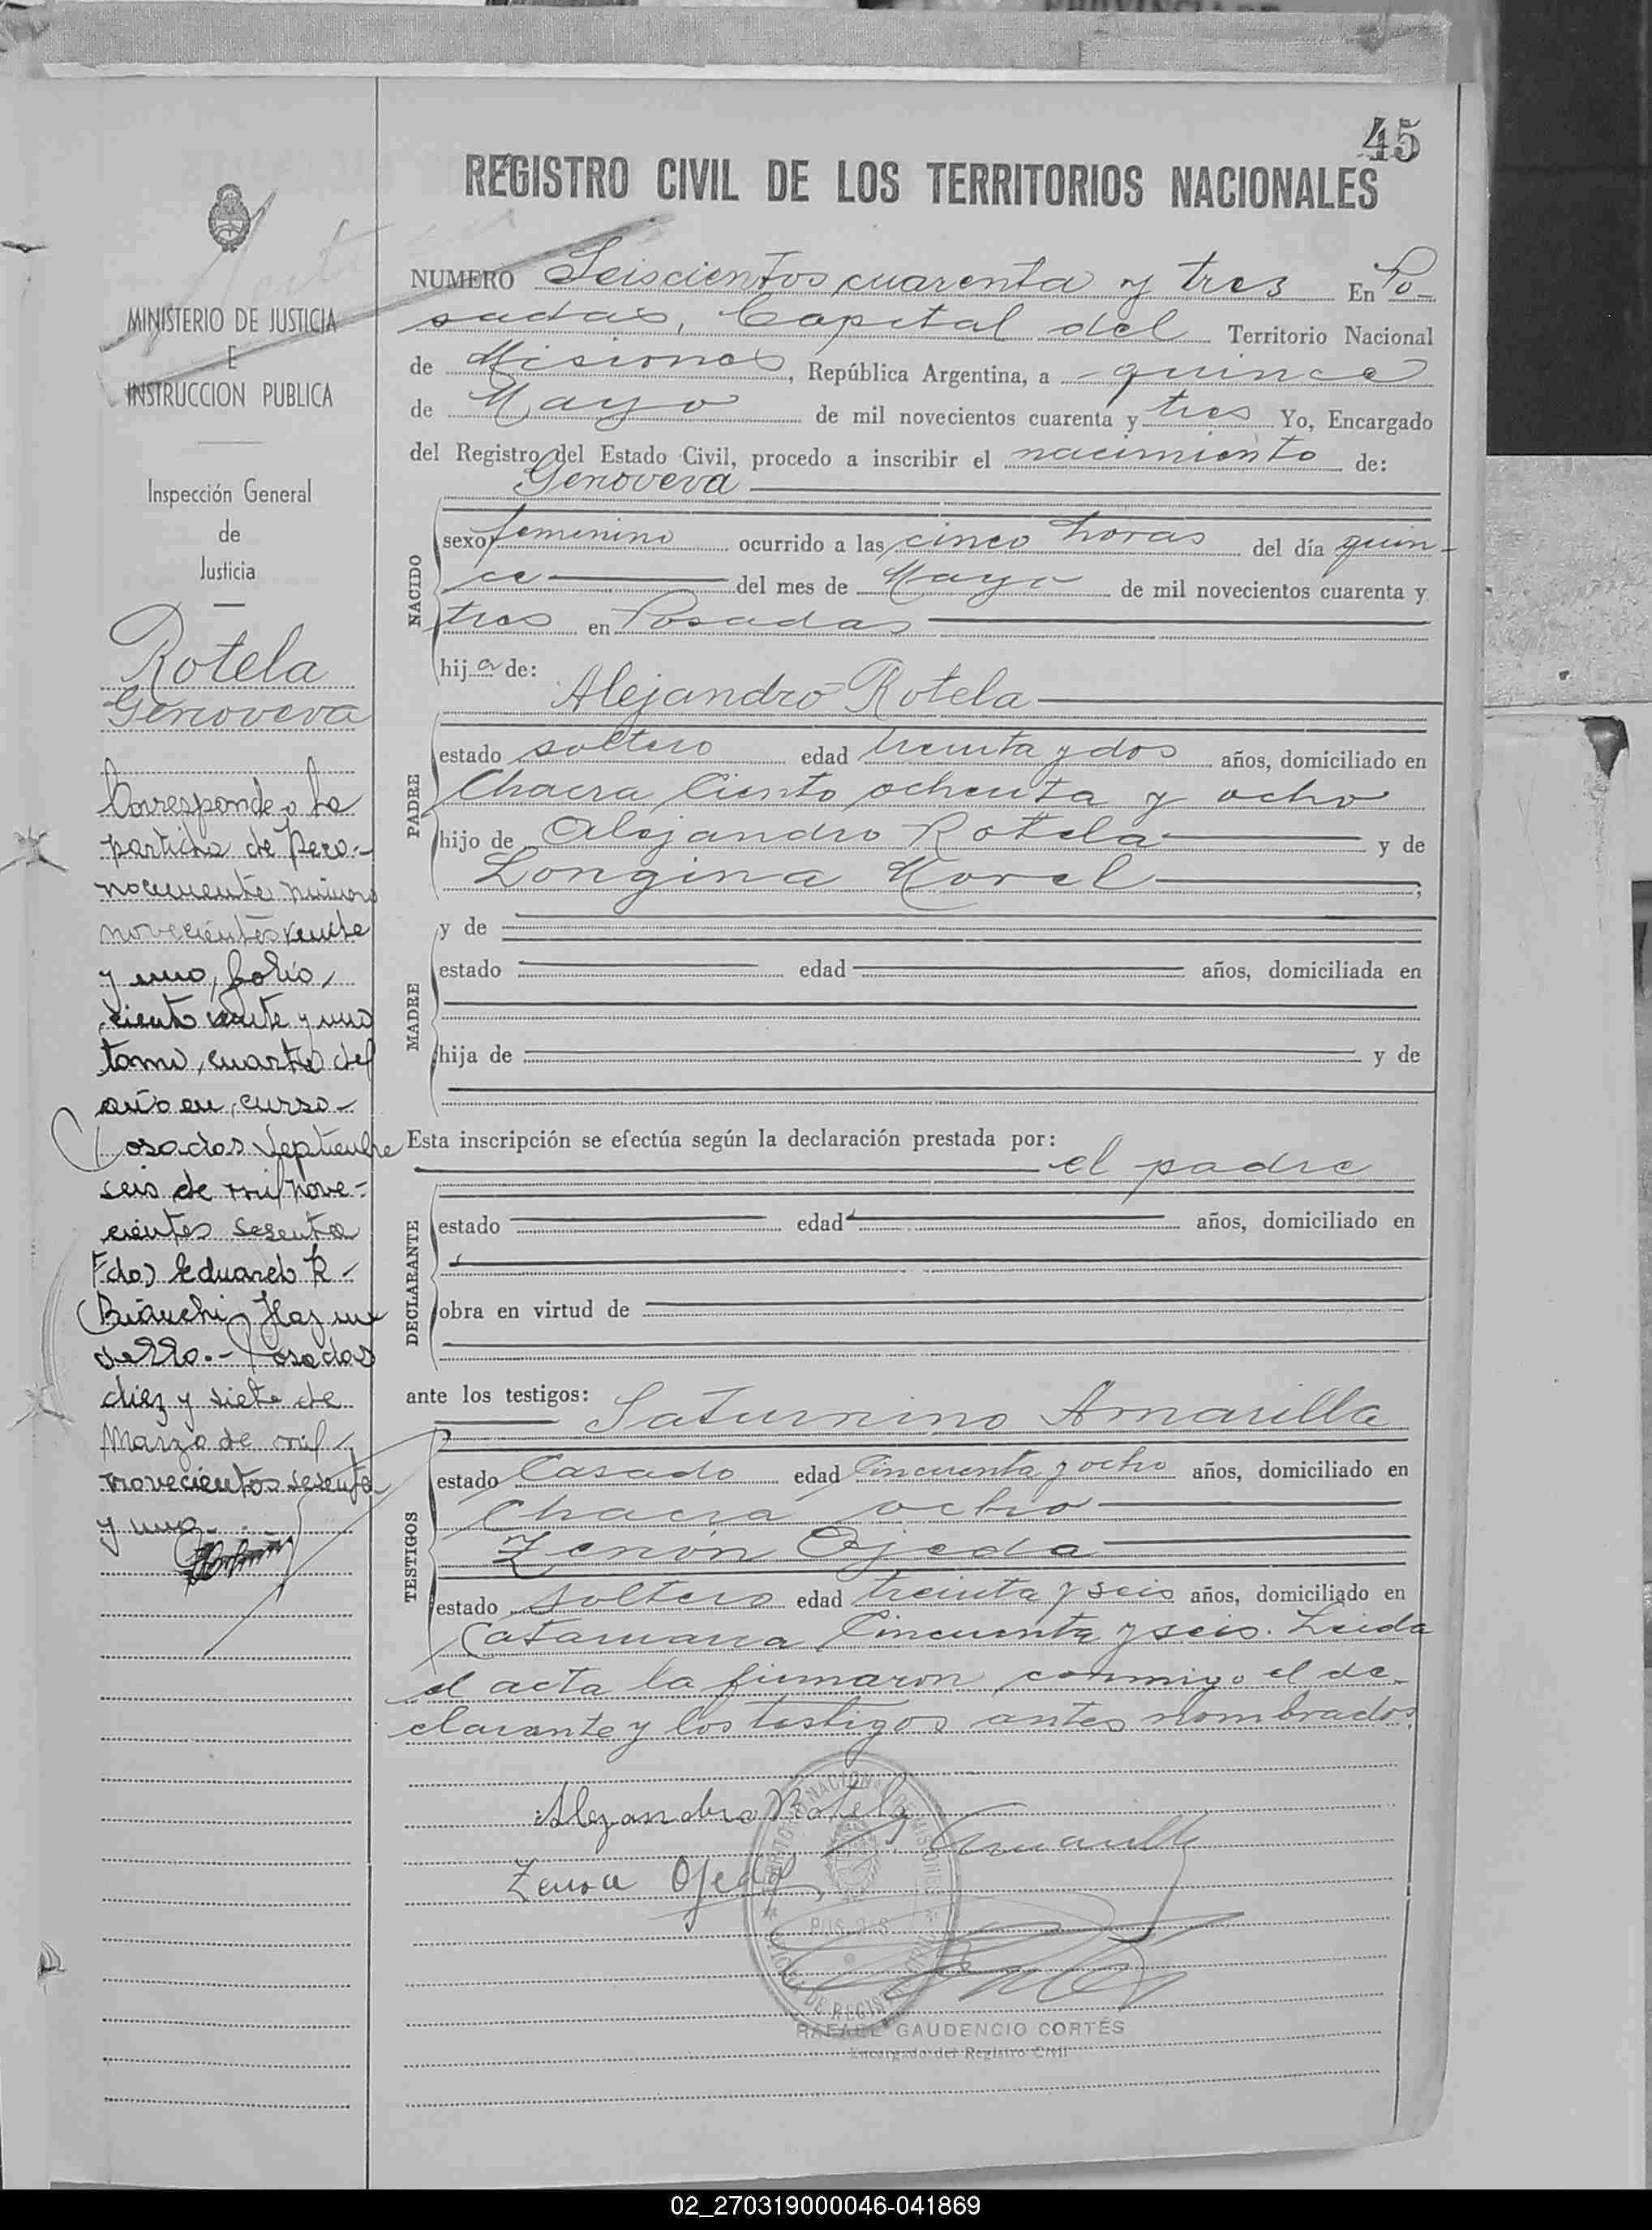 45
REGISTRO CIVIL DE LOS TERRITORIOS NACIONALES
MINISTERIO DE JUSTICIA
E
INSTRUCCION PUBLICA
Inspección General
de
Justicia
Rotela
Genoveva
Corresponde a la
partida de Reco-
nocimiento número
novecientos veinte
y uno, folio,
ciento veinte y uno
tomo, cuarto del
año en, curso-
Posadas Septiembre
seis de mil nove-
cientos sesenta
Fdo) Eduardo R-
Bianchi- Hay un
sello.- Posadas
diez y siete de
Marzo de mil
novecientos sesenta
y uno-
NUMERO Seiscientos cuarenta y tres En Po-
sadas, Capital del Territorio Nacional
de Misiones, República Argentina, a quince
de Mayo de mil novecientos cuarenta y tres Yo, Encargado
del Registro del Estado Civil, procedo a inscribir el nacimiento de:
Genoveva
NACIDO
sexo femenino ocurrido a las cinco horas del día quin-
ce del mes de Mayo de mil novecientos cuarenta y
tres en Posadas
hija de:
Alejandro Rotela
PADRE
estado soltero edad treinta y dos años, domiciliado en
Chacra Ciento ochenta y ocho
hijo de Alejandro Rotela y de
Longina Morel
MADRE
y de
estado edad años, domiciliada en
hija de y de
Esta inscripción se efectúa según la declaración prestada por:
el padre
DECLARANTE
estado edad años, domiciliado en
obra en virtud de
ante los testigos:
Saturnino Amarilla
TESTIGOS
estado Casado edad Cincuenta y ocho años, domiciliado en
Chacra ocho
Zenón Ojeda
estado soltero edad treinta y seis años, domiciliado en
Catamarca Cincuenta y seis. Leida
el acta la firmaron conmigo el de-
clarante y los testigos antes nombrados.
Alejandro Rotela
S. Amarilla
Zenon Ojeda
RAFAEL GAUDENCIO CORTÉS
Encargado del Registro Civil
02_270319000046-041869